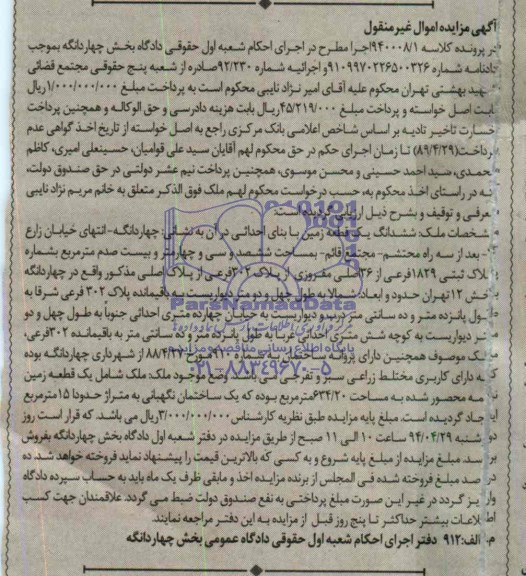 آگهی مزایده اموال غیر منقول
در پرونده کلاسه ۹۴۰۰۰۸/۱اجرا مطرح در اجرای احکام شعبه اول حقوقی دادگاه بخش چهاردانگه بموجب
دادنامه شماره ۹۱۰۹۹۷۰۲۲۶۵۰۰۳۲۶و اجرائیه شماره ۹۲/۲۳۰صادره از شعبه پنج حقوقی مجتمع قضائی
شهید بهشتی تهران محکوم علیه آقای امیر نژاد نایبی محکوم است به پرداخت مبلغ ۱/۰۰۰/۰۰۰/۰۰۰ریال
بابت اصل خواسته و پرداخت مبلغ ۴۵/۲۱۹/۰۰۰ریال بابت هزینه دادرسی و حق الوکاله و همچنین پرداخت
خسارت تاخیر تادیه بر اساس شاخص اعلامی بانک مرکزی راجع به اصل خواسته از تاریخ اخذ گواهی عدم
پرداخت(۸۹/۴/۲۹) تا زمان اجرای حکم در حق محکوم لهم آقایان سید علی قوامیان، حسینعلی امیری، کاظم
محمدی، سید احمد حسینی و محسن موسوی، همچنین پرداخت نیم عشر دولتی در حق صندوق دولت،
که در راستای اخذ محکوم به، حسب درخواست محکوم لهم ملک فوق الذکر متعلق به خانم مریم نژاد نایبی
معرفی و توقیف و بشرح ذیل ارزیابی گردیده است:
مشخصات ملک: ششدانگ یک قطعه زمین با بنای احداثی در آن به نشانی: چهاردانگه- انتهای خیابان زارع
۱۳- بعد از سه راه محتشم- مجتمع قائم- بمساحت ششصد و سی و چهارمتر و بیست صدم مترمربع بشماره
پلاک ثبتی ۱۸۲۹ فرعی از ۳۶اصلی مفروزی از پلاک ۳۰۲ فرعی از پلاک اصلی مذکور واقع در چهاردانگه
بخش ۱۲تهران حدود و ابعاد: شمالا به طول چهل و دو متر دیواریست به باقیمانده پلاک ۳۰۲ فرعی شرقا به
طول پانزده متر و ده سانتی متر درب و دیواریست به خیابان چهارده متری احداثی جنوباً به طول چهل و دو
متر دیواریست به کوچه شش متری احداثی غربا به طول پانزده متر و ده سانتی متر به باقیمانده ۳۰۲فرعی.
ملک موصوف همچنین دارای پروانه ساختمان به شماره ۹۱۰ مورخ ۸۸/۴/۲۷ از شهرداری چهاردانگه بوده
که دارای کاربری مختلط زراعی سبز و تفرجی می باشد وضع موجود ملک: ملک شامل یک قطعه زمین
نیمه محصور شده به مساحت ۶۳۴/۲۰مترمربع بوده که یک ساختمان نگهبانی به متراژ حدودا ۱۵مترمربع
ایجاد گردیده است. مبلغ پایه مزایده طبق نظریه کارشناس ۳/۰۰۰/۰۰۰/۰۰۰ریال می باشد. که قرار است روز
دوشنبه ۹۴/۰۴/۲۹ ساعت ۱۰ الی ۱۱ صبح از طریق مزایده در دفتر شعبه اول دادگاه بخش چهاردانگه بفروش
برسد. مبلغ مزایده از مبلغ پایه شروع و به کسی که بالاترین قیمت را پیشنهاد نماید فروخته خواهد شد. ده
درصد مبلغ فروخته شده فی المجلس از برنده مزایده اخذ و مابقی ظرف یک ماه باید به حساب سپرده دادگاه
واریز گردد در غیر این صورت مبلغ پرداختی به نفع صندوق دولت ضبط می گردد. علاقمندان جهت کسب
اطلاعات بیشتر حداکثر تا پنج روز قبل از مزایده به این دفتر مراجعه نمایند.
م. الف:۹۱۲ دفتر اجرای احکام شعبه اول حقوقی دادگاه عمومی بخش چهاردانگه
ParsNamadData
پایگاه اطلاع رسانی مناقصه و مزایده
۰۲۱-۸۸۳۴۹۶۷۰-۵